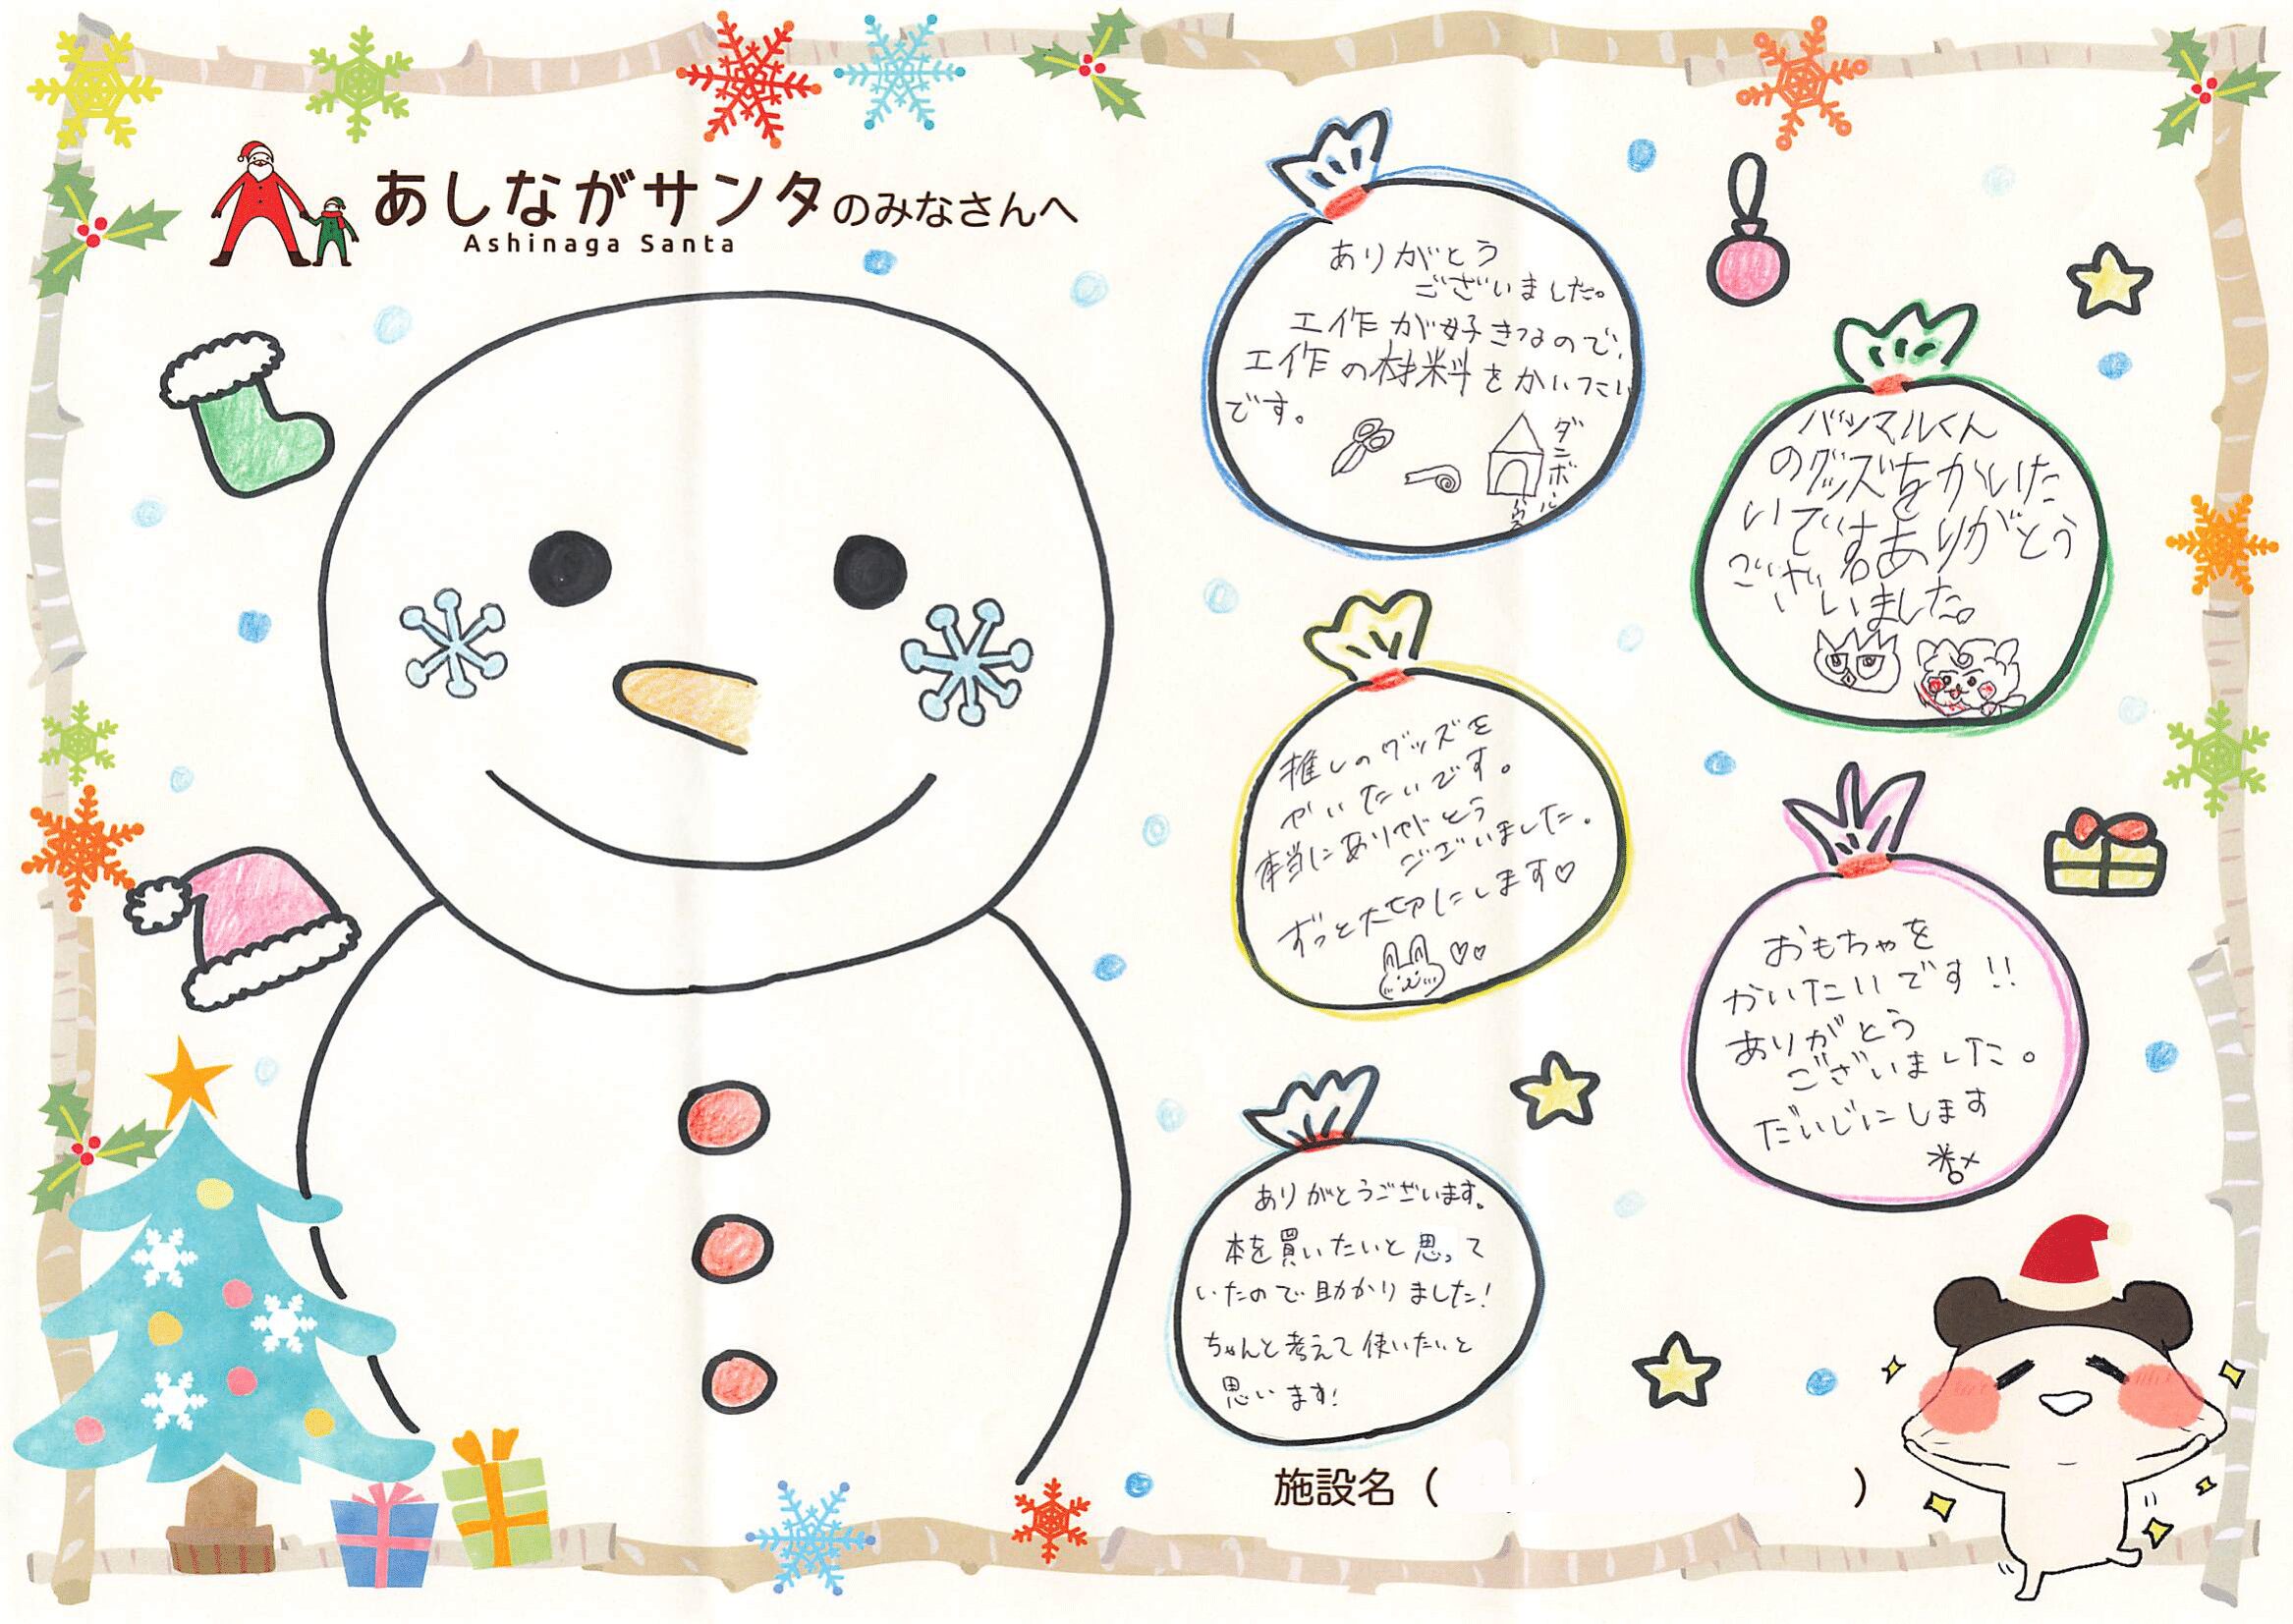 あしながサンタのみなさんへ
Ashinaga Santa
ありがとう
ございました。
工作が好きなので、
工作の材料をかいたい
です。
ダンボール
ハウス
バツマルくん
のグッズをかいた
いです。ありがとう
ございました。
推しのグッズを
かいたいです。
本当にありがとう
ございました。
ずっと大切にします♡
おもちゃを
かいたいです!!
ありがとう
ございました。
だいじにします
ありがとうございます。
本を買いたいと思って
いたので助かりました!
ちゃんと考えて使いたいと
思います!
施設名 ( )